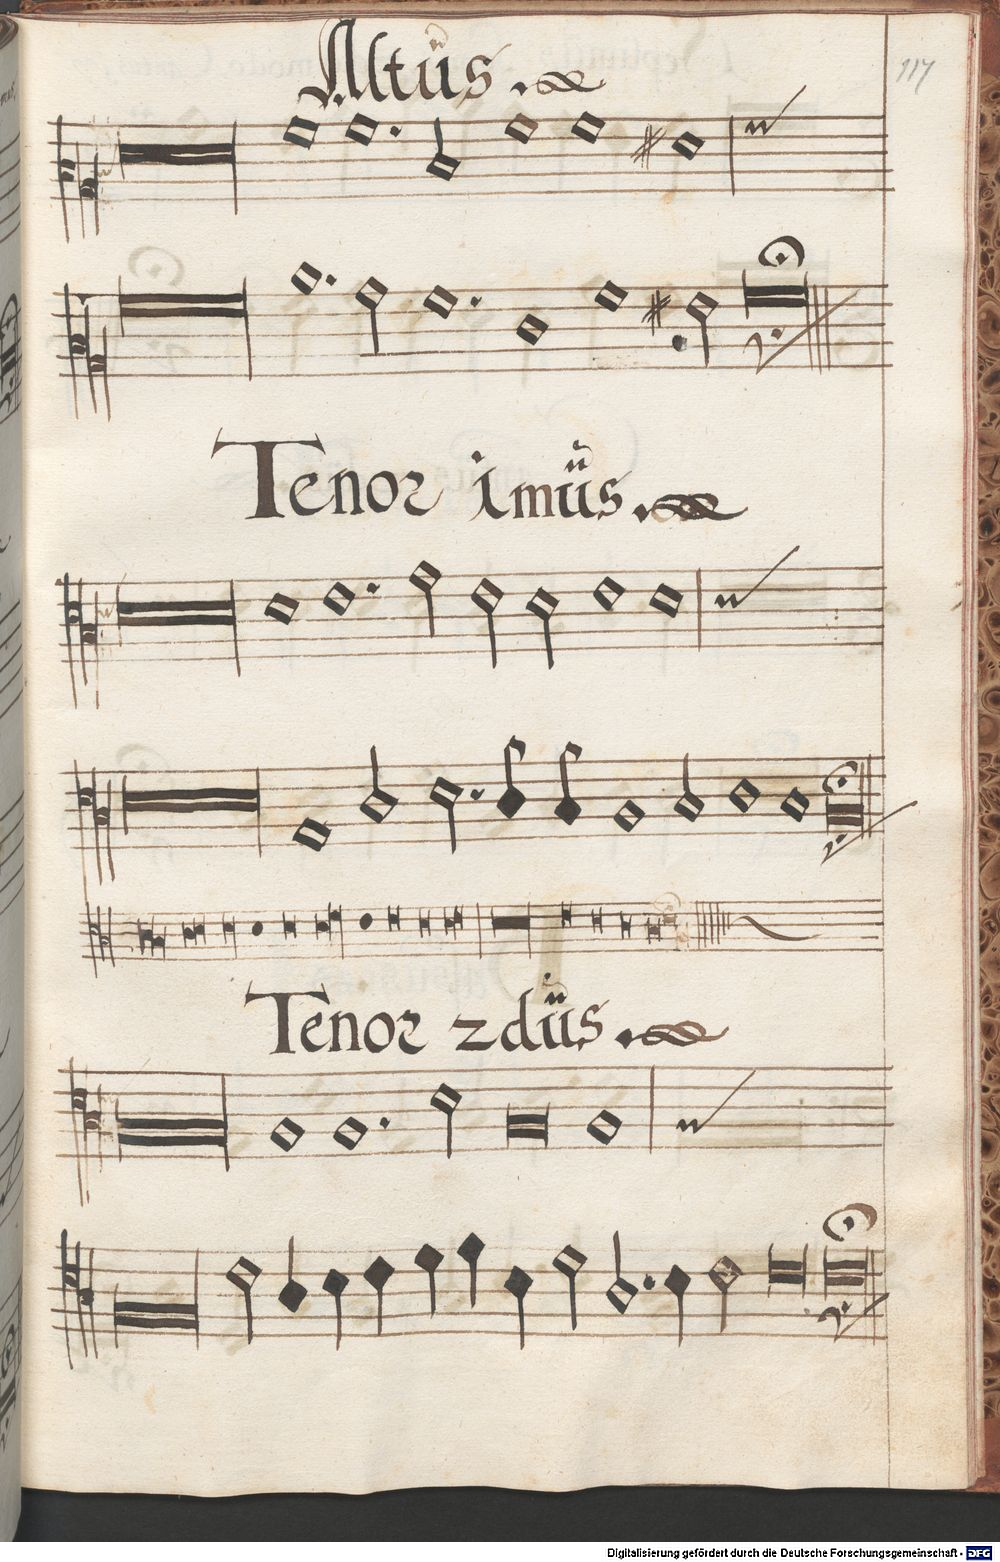 Altus.
117
Tenor imus.
Tenor 2dus.
Digitalisierung gefördert durch die Deutsche Forschungsgemeinschaft - DFG